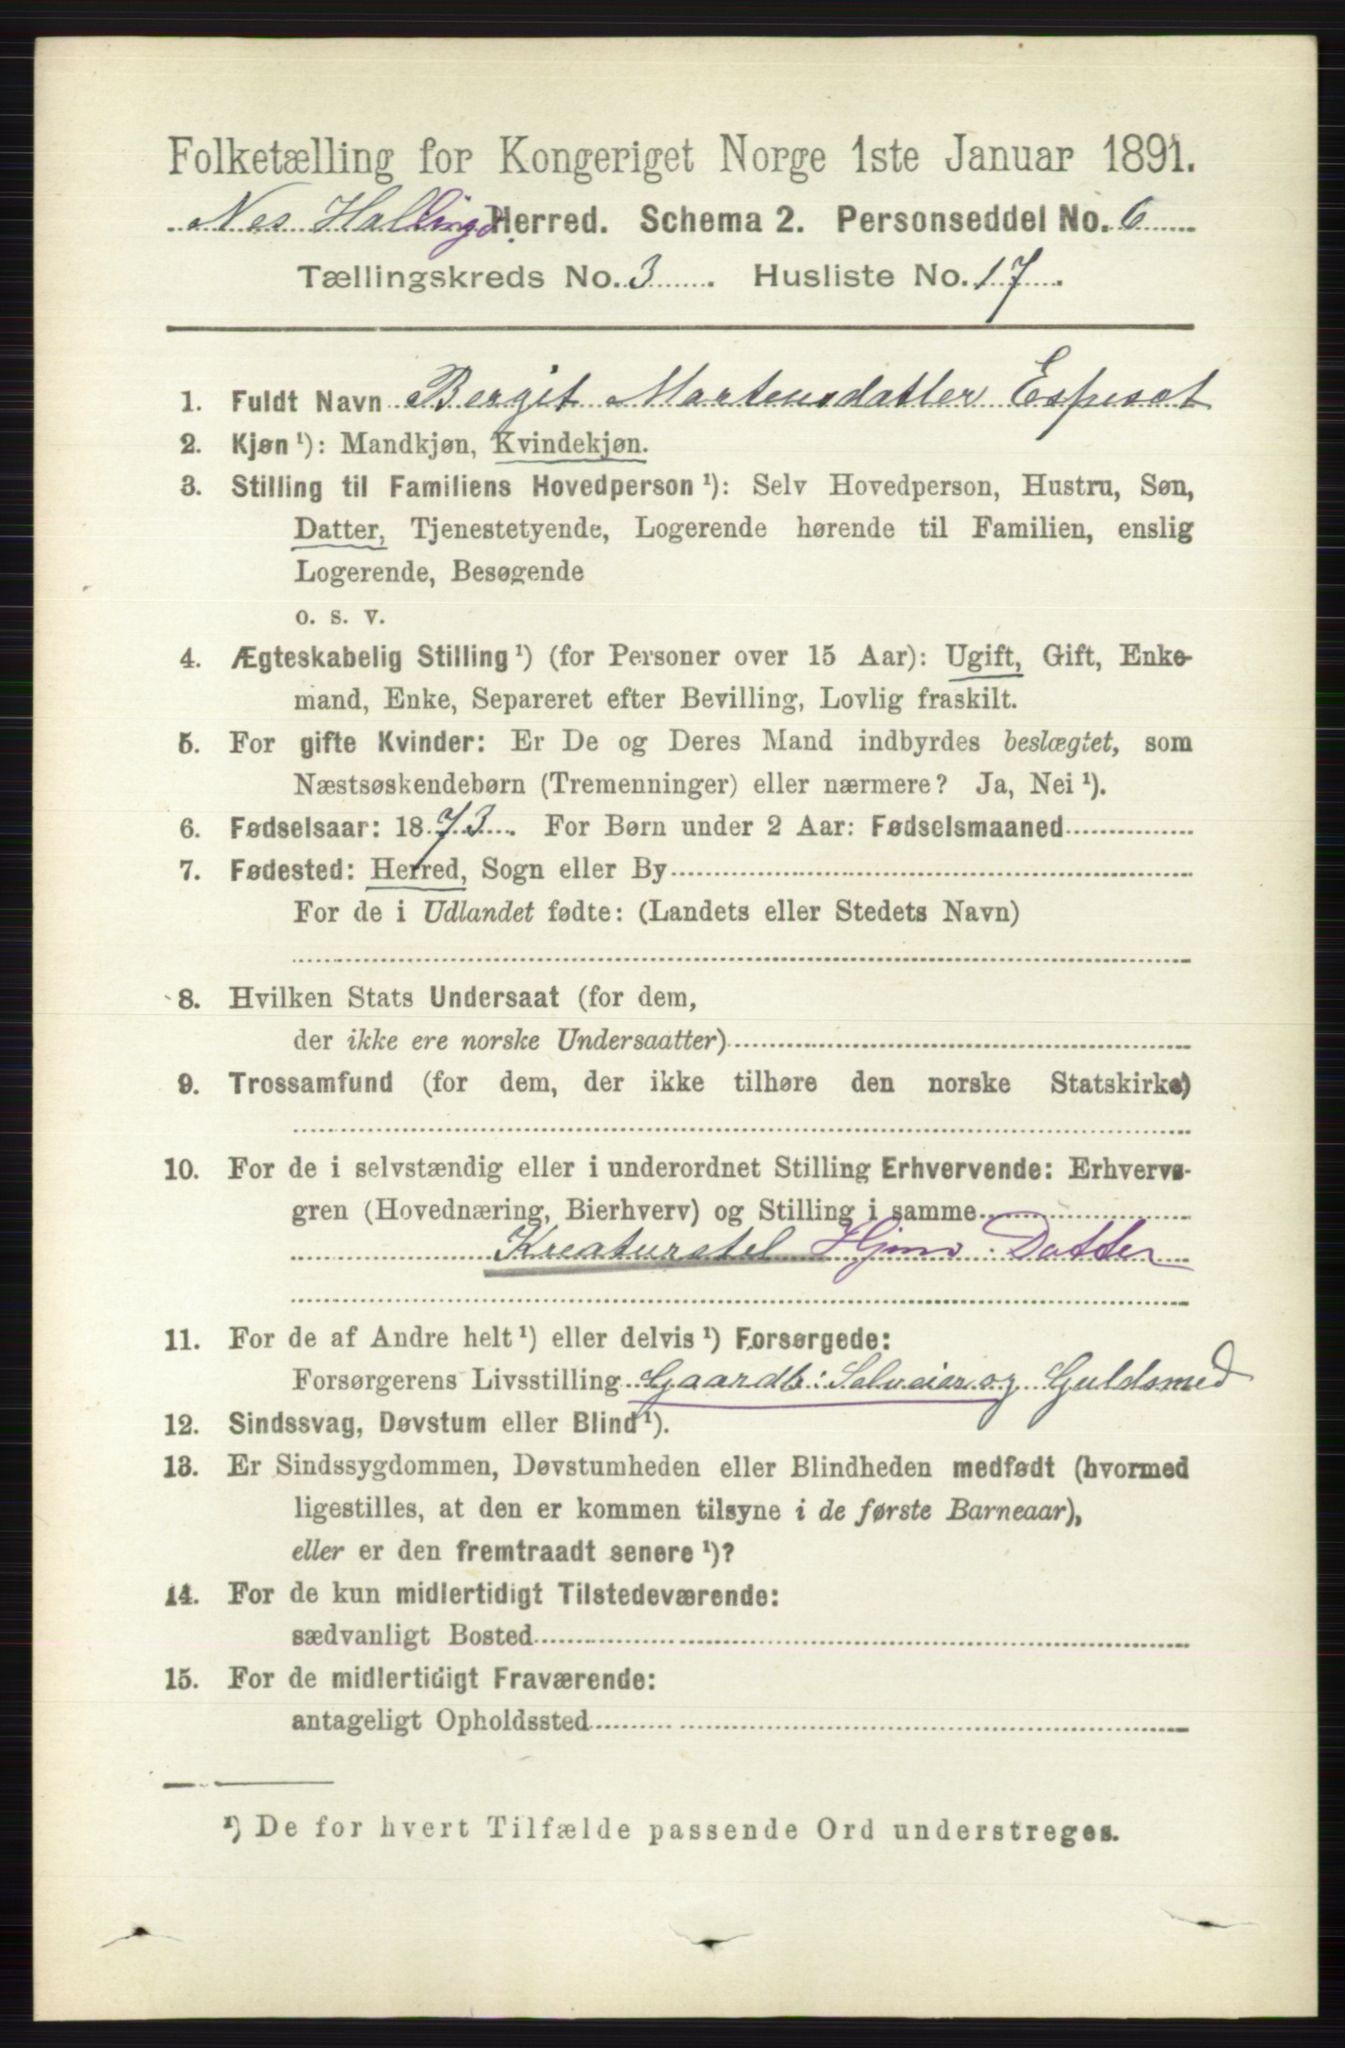 Folketælling for Kongeriget Norge 1ste Januar 1891.
Nes Hallingd. Herred. Schema 2. Personseddel No. 6
Tællingskreds No. 3. Husliste No. 17.
1. Fuldt Navn Bergit Martensdatter Espeset
2. Kjøn ¹): Mandkjøn, Kvindekjøn.
3. Stilling til Familiens Hovedperson ¹): Selv Hovedperson, Hustru, Søn,
Datter, Tjenestetyende, Logerende hørende til Familien, enslig
Logerende, Besøgende
o. s. v.
4. Ægteskabelig Stilling ¹) (for Personer over 15 Aar): Ugift, Gift, Enke-
mand, Enke, Separeret efter Bevilling, Lovlig fraskilt.
5. For gifte Kvinder: Er De og Deres Mand indbyrdes beslægtet, som
Næstsøskendebørn (Tremenninger) eller nærmere? Ja, Nei ¹).
6. Fødselsaar: 1873. For Børn under 2 Aar: Fødselsmaaned
7. Fødested: Herred, Sogn eller By
For de i Udlandet fødte: (Landets eller Stedets Navn)
8. Hvilken Stats Undersaat (for dem,
der ikke ere norske Undersaatter)
9. Trossamfund (for dem, der ikke tilhøre den norske Statskirke)
10. For de i selvstændig eller i underordnet Stilling Erhvervende: Erhvervs-
gren (Hovednæring, Bierhverv) og Stilling i samme
Kreaturstel Hjmv. Datter
11. For de af Andre helt ¹) eller delvis ¹) Forsørgede:
Forsørgerens Livsstilling Gaardb: Selveier og Guldsmed
12. Sindssvag, Døvstum eller Blind ¹).
13. Er Sindssygdommen, Døvstumheden eller Blindheden medfødt (hvormed
ligestilles, at den er kommen tilsyne i de første Barneaar),
eller er den fremtraadt senere ¹)?
14. For de kun midlertidigt Tilstedeværende:
sædvanligt Bosted
15. For de midlertidigt Fraværende:
antageligt Opholdssted
¹) De for hvert Tilfælde passende Ord understreges.